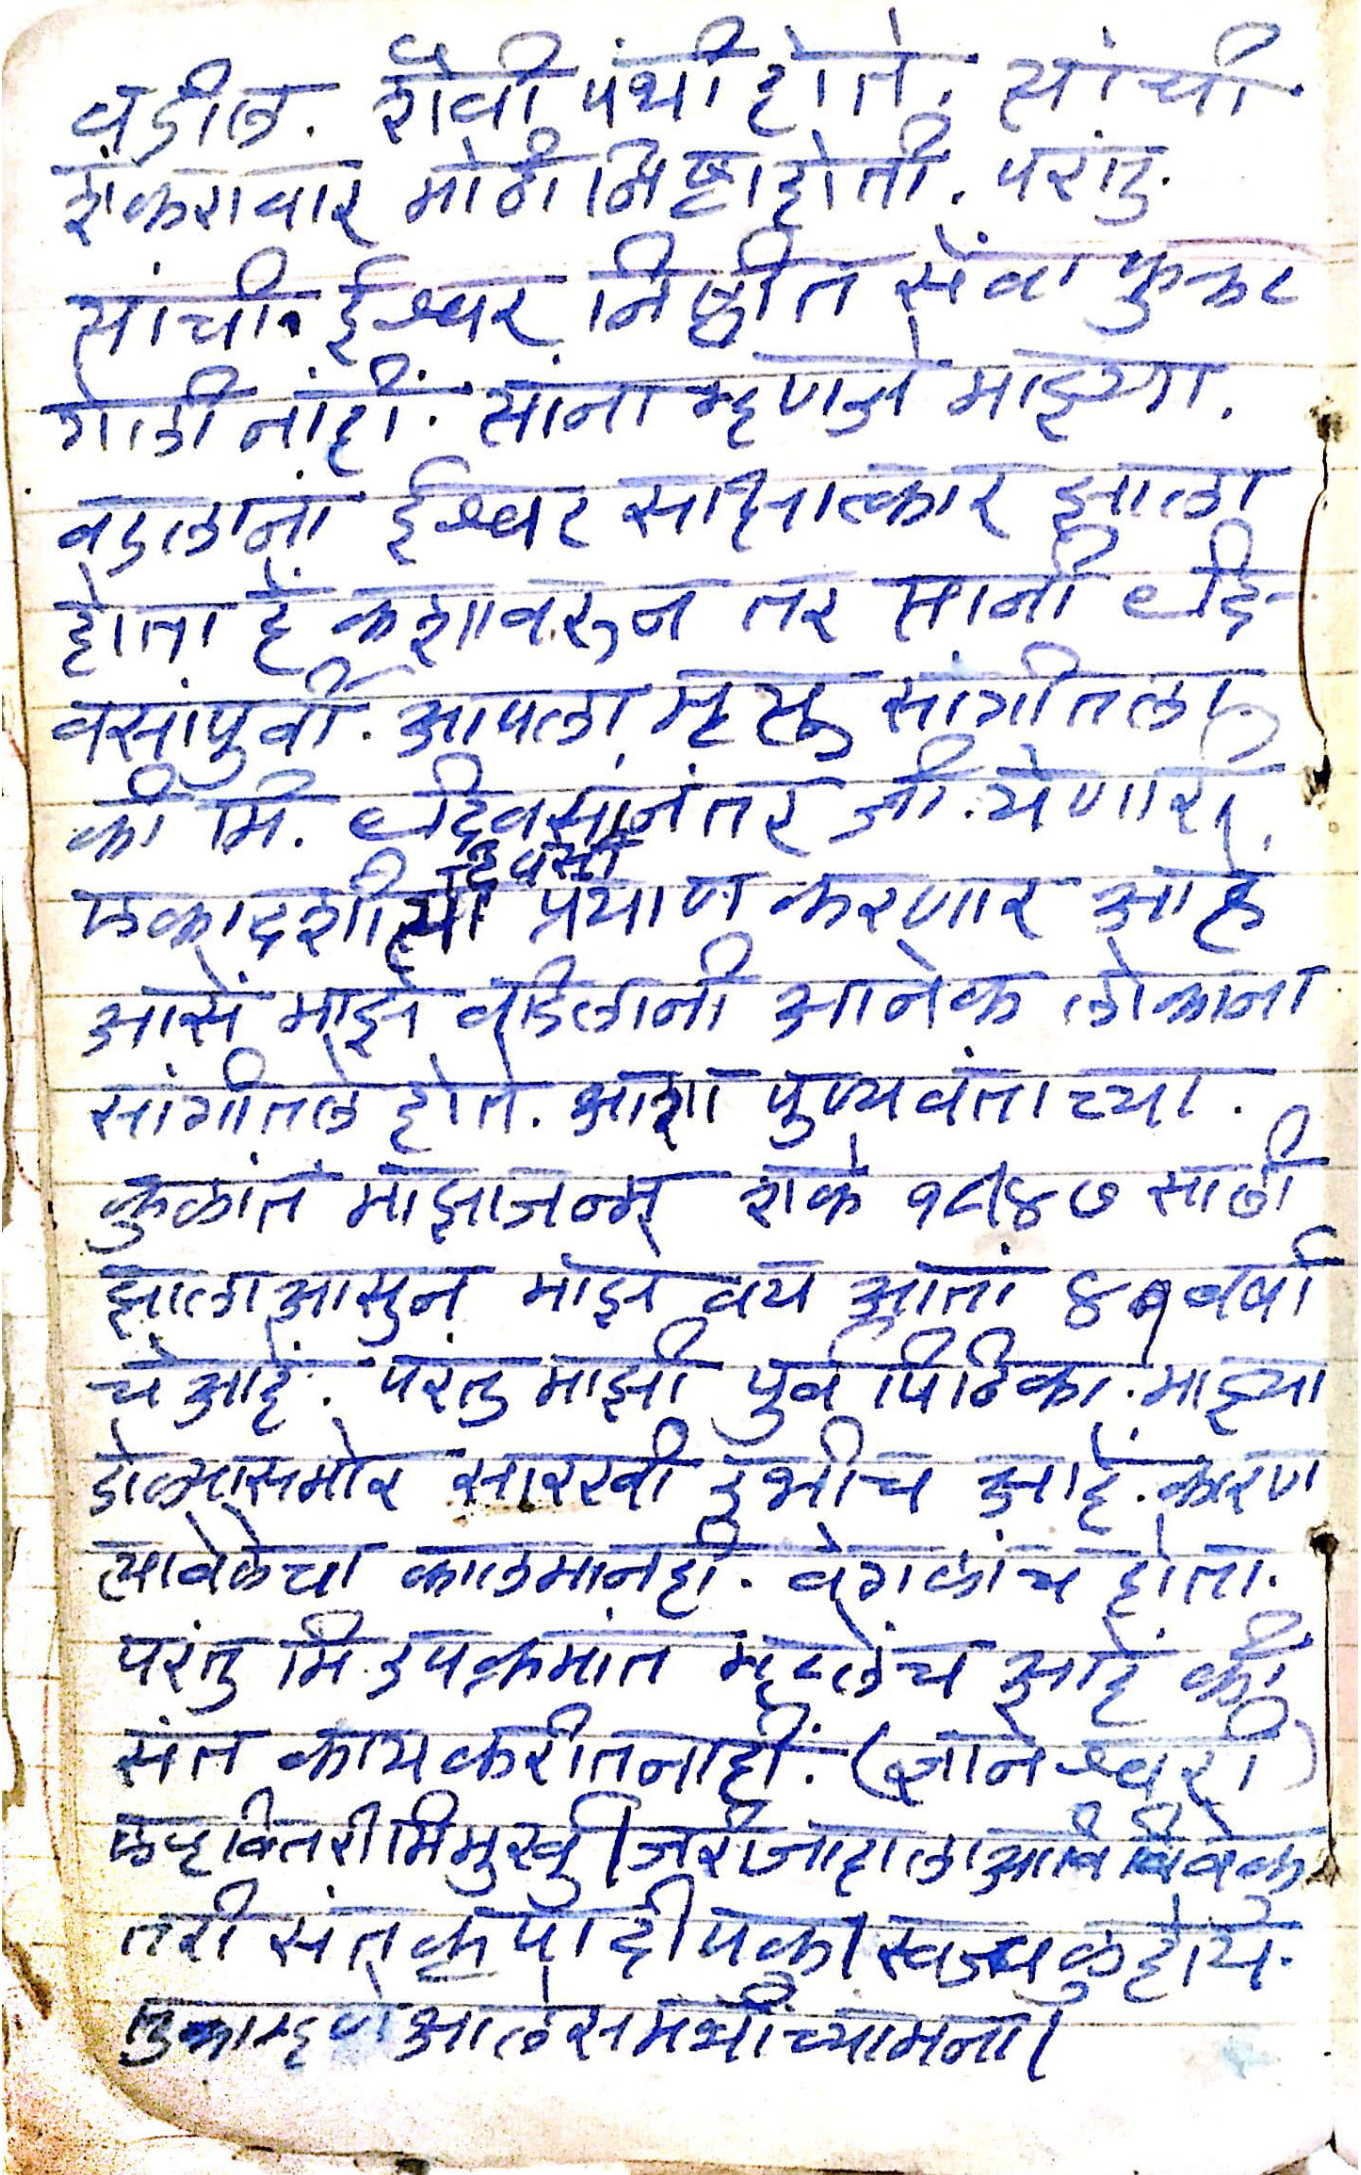 वडील. शैवी पंथी होते. त्यांची
शंकरावार मोठी निष्ठा होती. परंतु.
त्यांची. ईश्वर निष्ठीत सेंवा फुकट
गेली नांहीं. त्यांना म्हणजे माझ्या.
वडलानां ईश्वर साक्षात्कार झाला
होता हें कशावरुन तर त्यानी ८दि-
वसांपुर्वी. आपला मृत्यू सांगीतला
की मि. ८दिवसांनंतर जी. येणारी.
एकादशी त्या दिवसी प्रयाण करणार आहे
आसें माझे वडिलानी आनेक लोकाना
सांगीतले होते. आशा पुण्यवंताच्या.
कुळांत माझा जन्म शके १८४७ साली
झाला आसुन माझे वय आतां ४१ वर्षा
चे आहें. परंतु माझी पुर्व पिठिका. माझ्या
डोळ्यासमोर सारखी उभीच आहें. कारण
त्यावेळेचा कालमानही. वेगळाच होता.
परंतु मि उपक्रमांत म्हटलेंच आहें की
संत काय करीत नाहीं. (ज्ञानेश्वरी)
एऱ्हवितरी मि मुर्खु। जरी जाहाला अविवेकु
तरी संत कृपा दीपकु। स्वज्वळु होय.
तुका म्हणे आले समर्थाच्या मना।